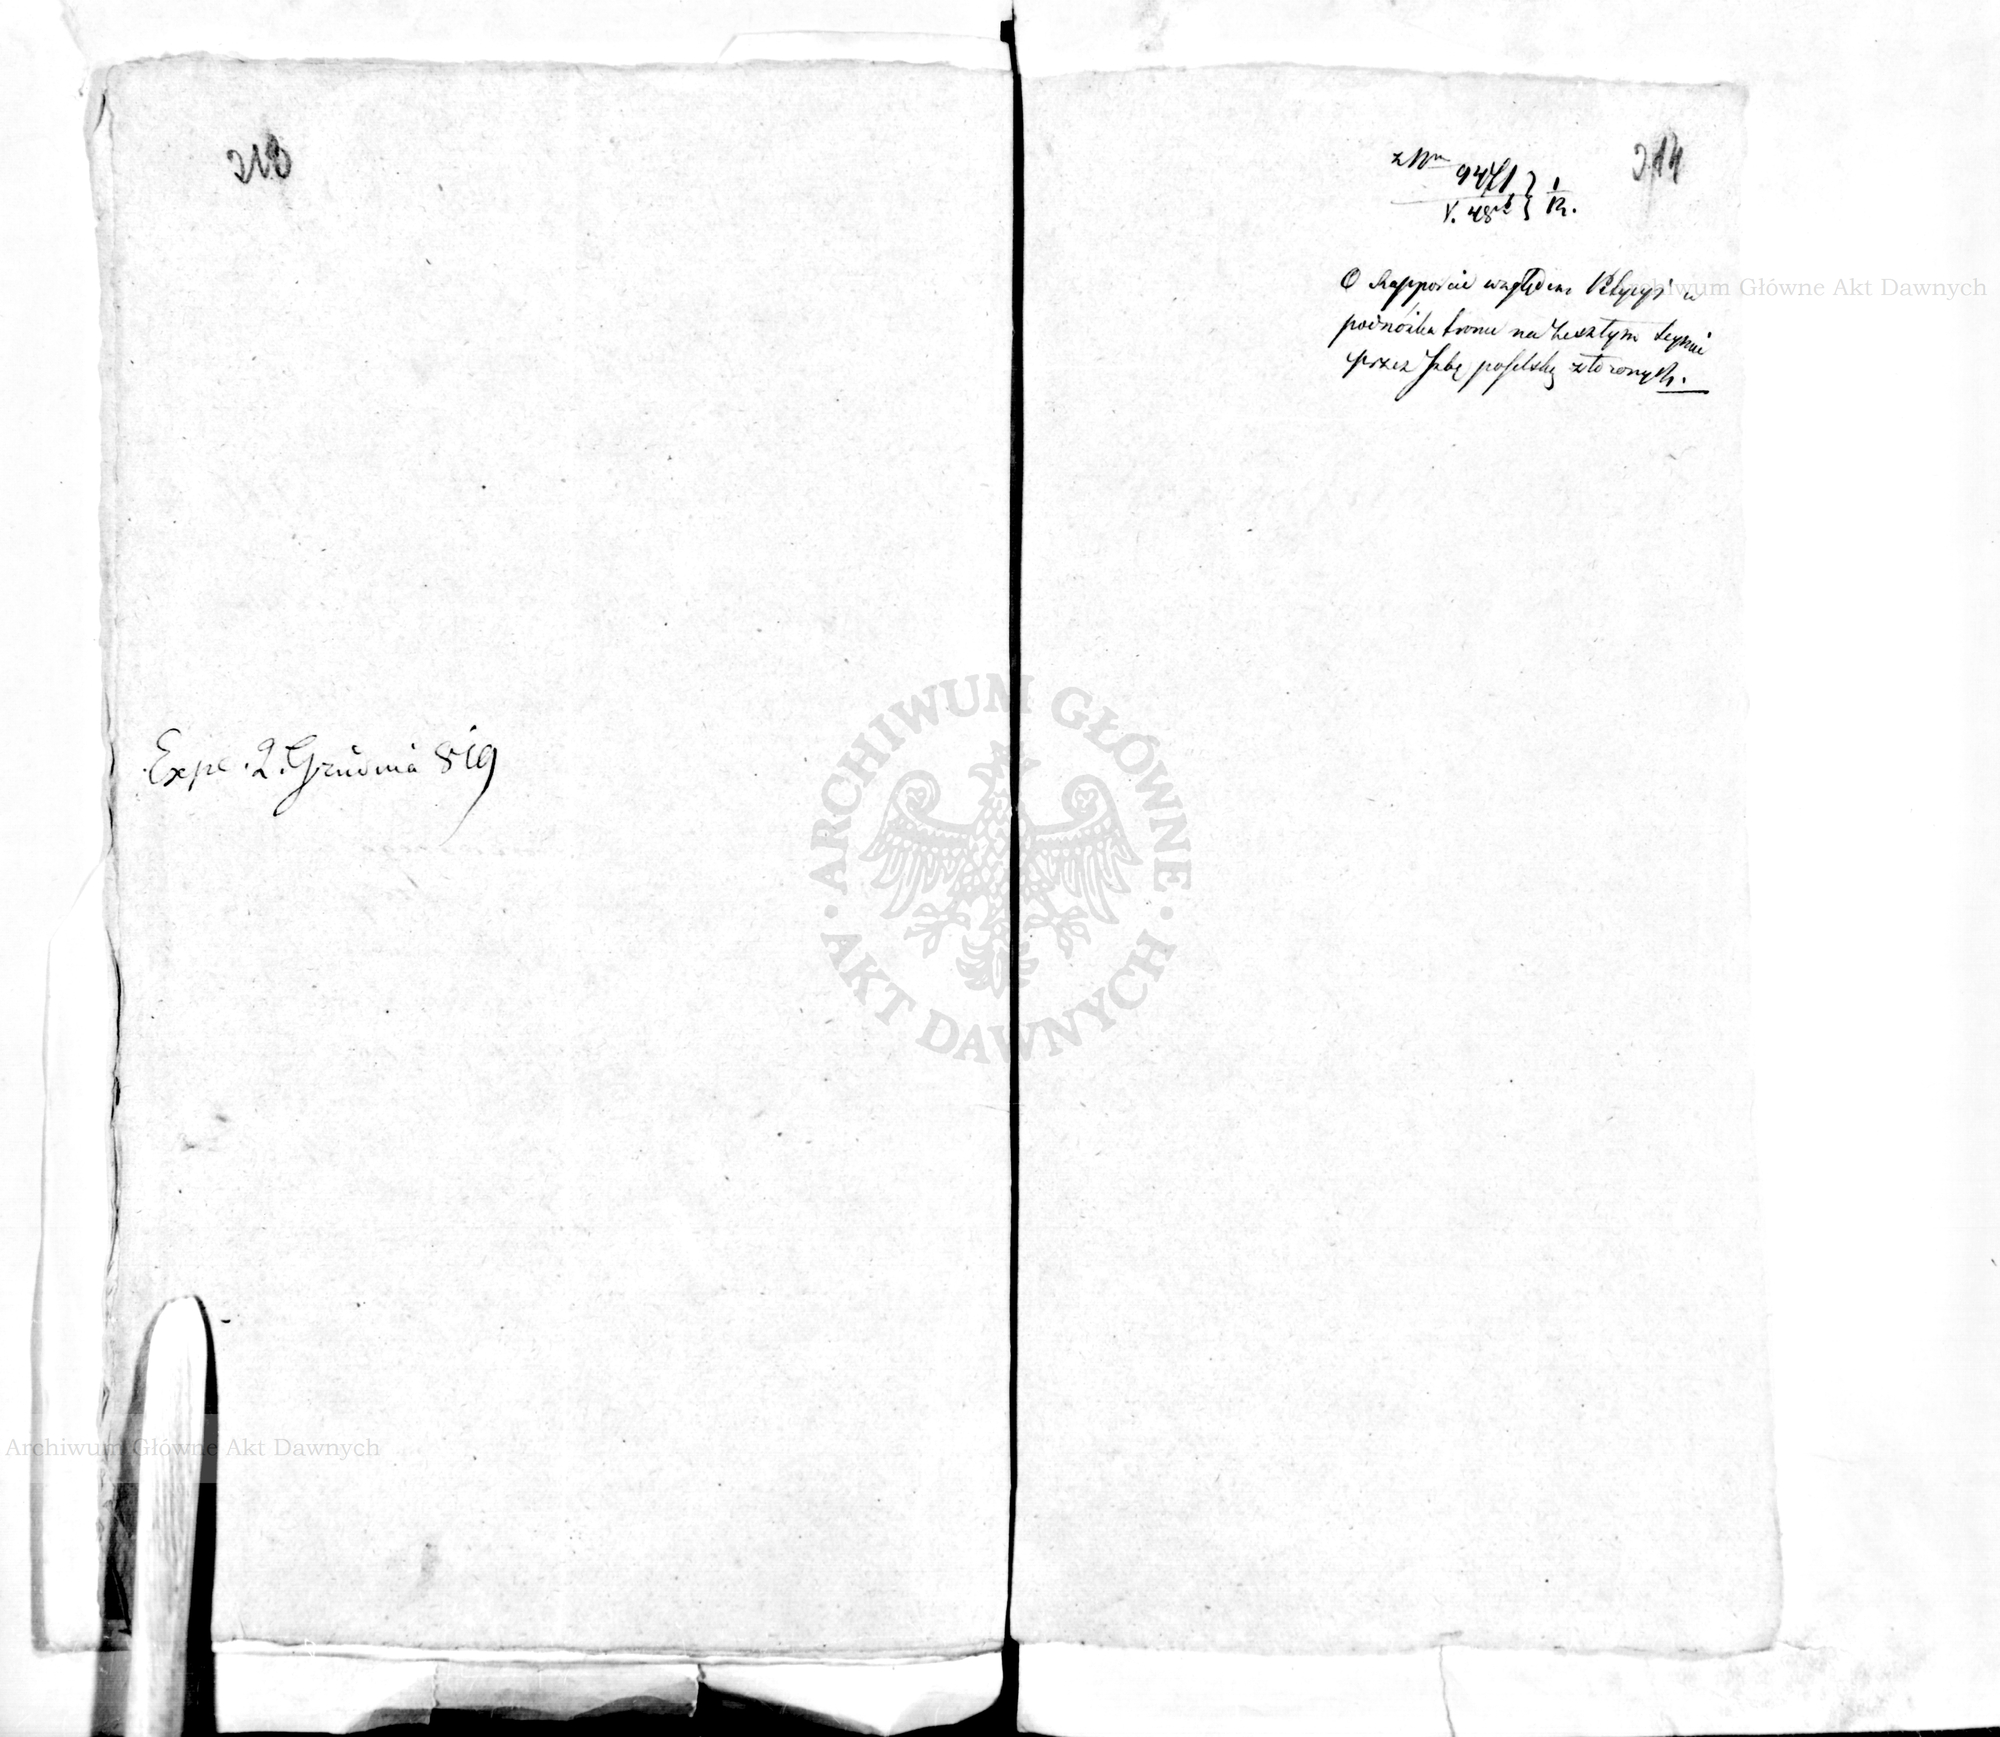 213
Exp. 2. Grudnia 819
314
z Nru
V. 48
O Rapporcie względem Petycyi u
podnóżka tronu na zeszłym Seymie
przez Jzbę poselską złożonych.
Archiwum Główne Akt Dawnych
ARCHIWUM GŁÓWNE
AKT DAWNYCH
Archiwum Główne Akt Dawnych